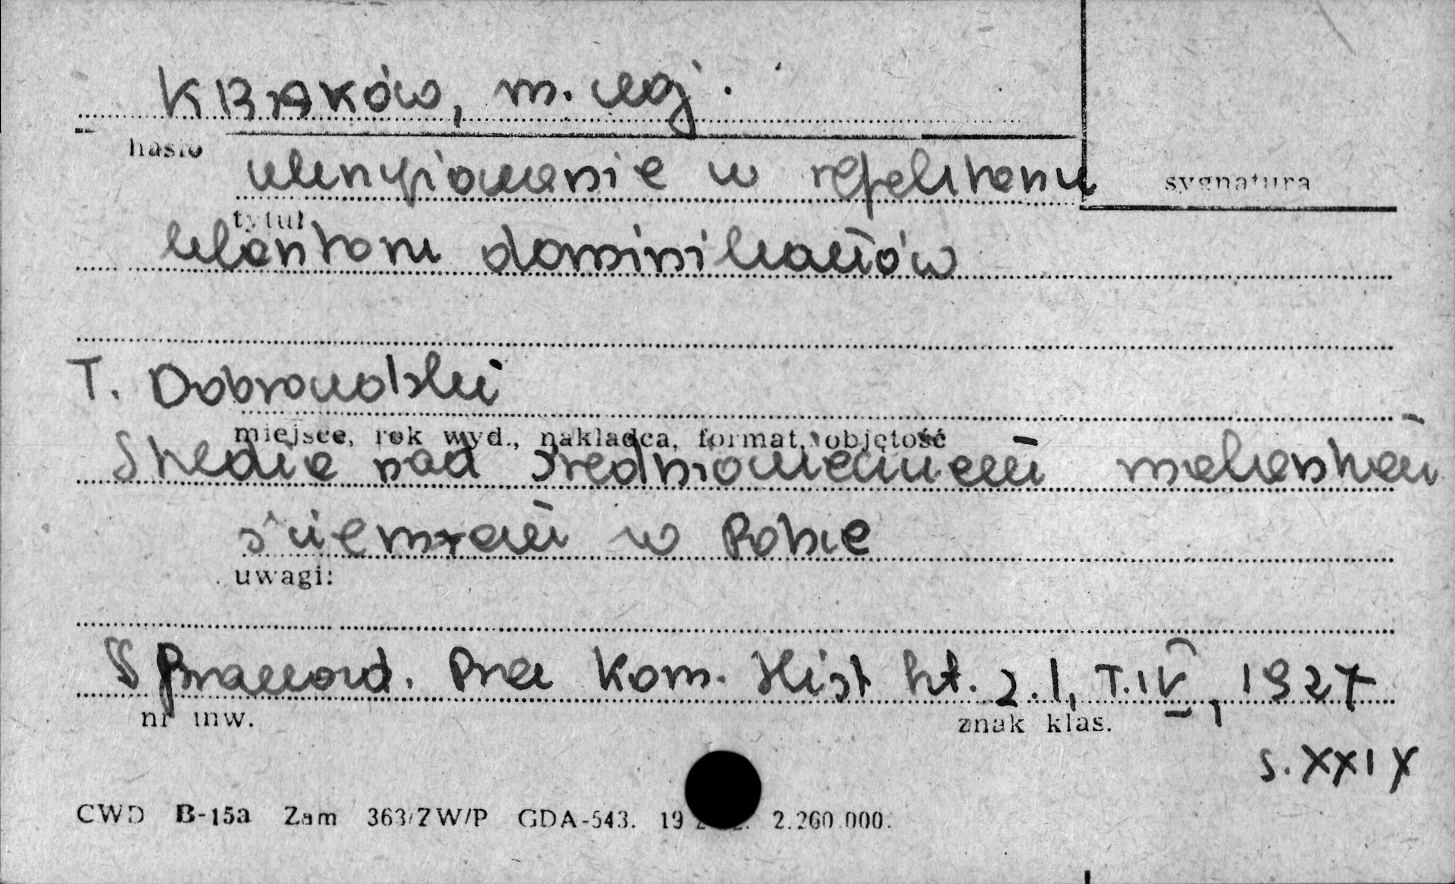 KRAKÓW, m. woj.
hasło
ukrzyżowanie w refektarzu
sygnatura
tytuł
klasztoru dominikanów
T. Dobrowolski
miejsce, rok wyd., nakładca, format, objętość
Studia nad średniowiecznem malarstwem
ściennem w Polsce
uwagi:
Sprawozd. Prac Kom. Hist szt. z. I, T. IV, 1927
nr inw.
znak klas.
s. XXIX
CWD B-15a Zam 363/ZW/P GDA-543. 19 2.260.000.